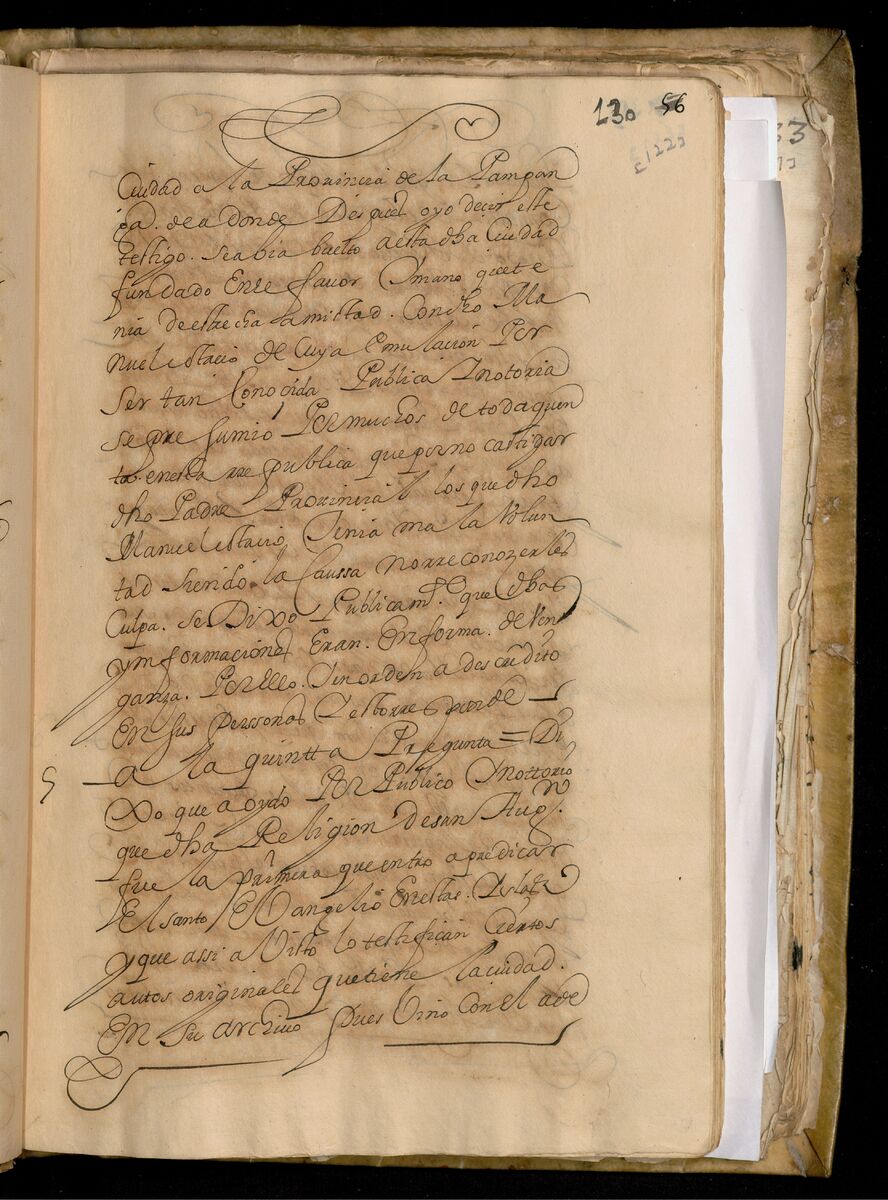 130 56
[122]
Ciudad a la Provincia de la Pampan
ga. de a donde Despues oyo decir este
testigo. seabia buelto aesta dha Ciudad
fundado Enel favor Ymano quete
nia de estrecha amistad. Con dho Ma
nuel estacio de Cuya emulación Por
ser tan Conocida Publica Ynotoria
sepresumio Por muchos de todaquen
ta. enesta rrepublica que por no castigar
dho Padre Provincial los que dho
Manuel estacio Tenia mala Volun
tad herido. la Caussa no rreconozerles
Culpa. se Dixo Publicamte. que dhas
ynformaciones Eran. En forma. de Ven
ganza. Por ello. Yen orden a descredito
En sus perssonas Y esto rresponde
5 A la quintta Pregunta = Di
Xo que a oydo Por Publico Ynottorio
que dha Religion de san Augn.
fue la primera que entro a predicar
El santo EVangelio En estas. Yslas
y que assi a Visto lo testifican Ciertos
autos originales que tiene la ciudad.
En su archivo Pues Vino Con el ade